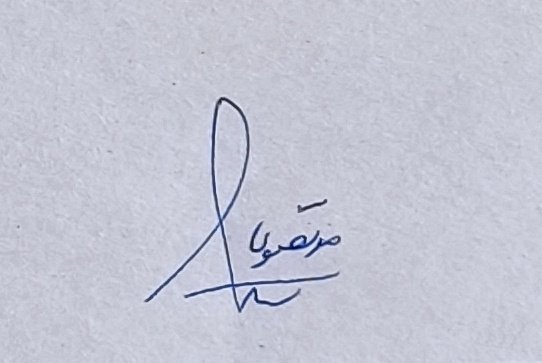 مرتضوی